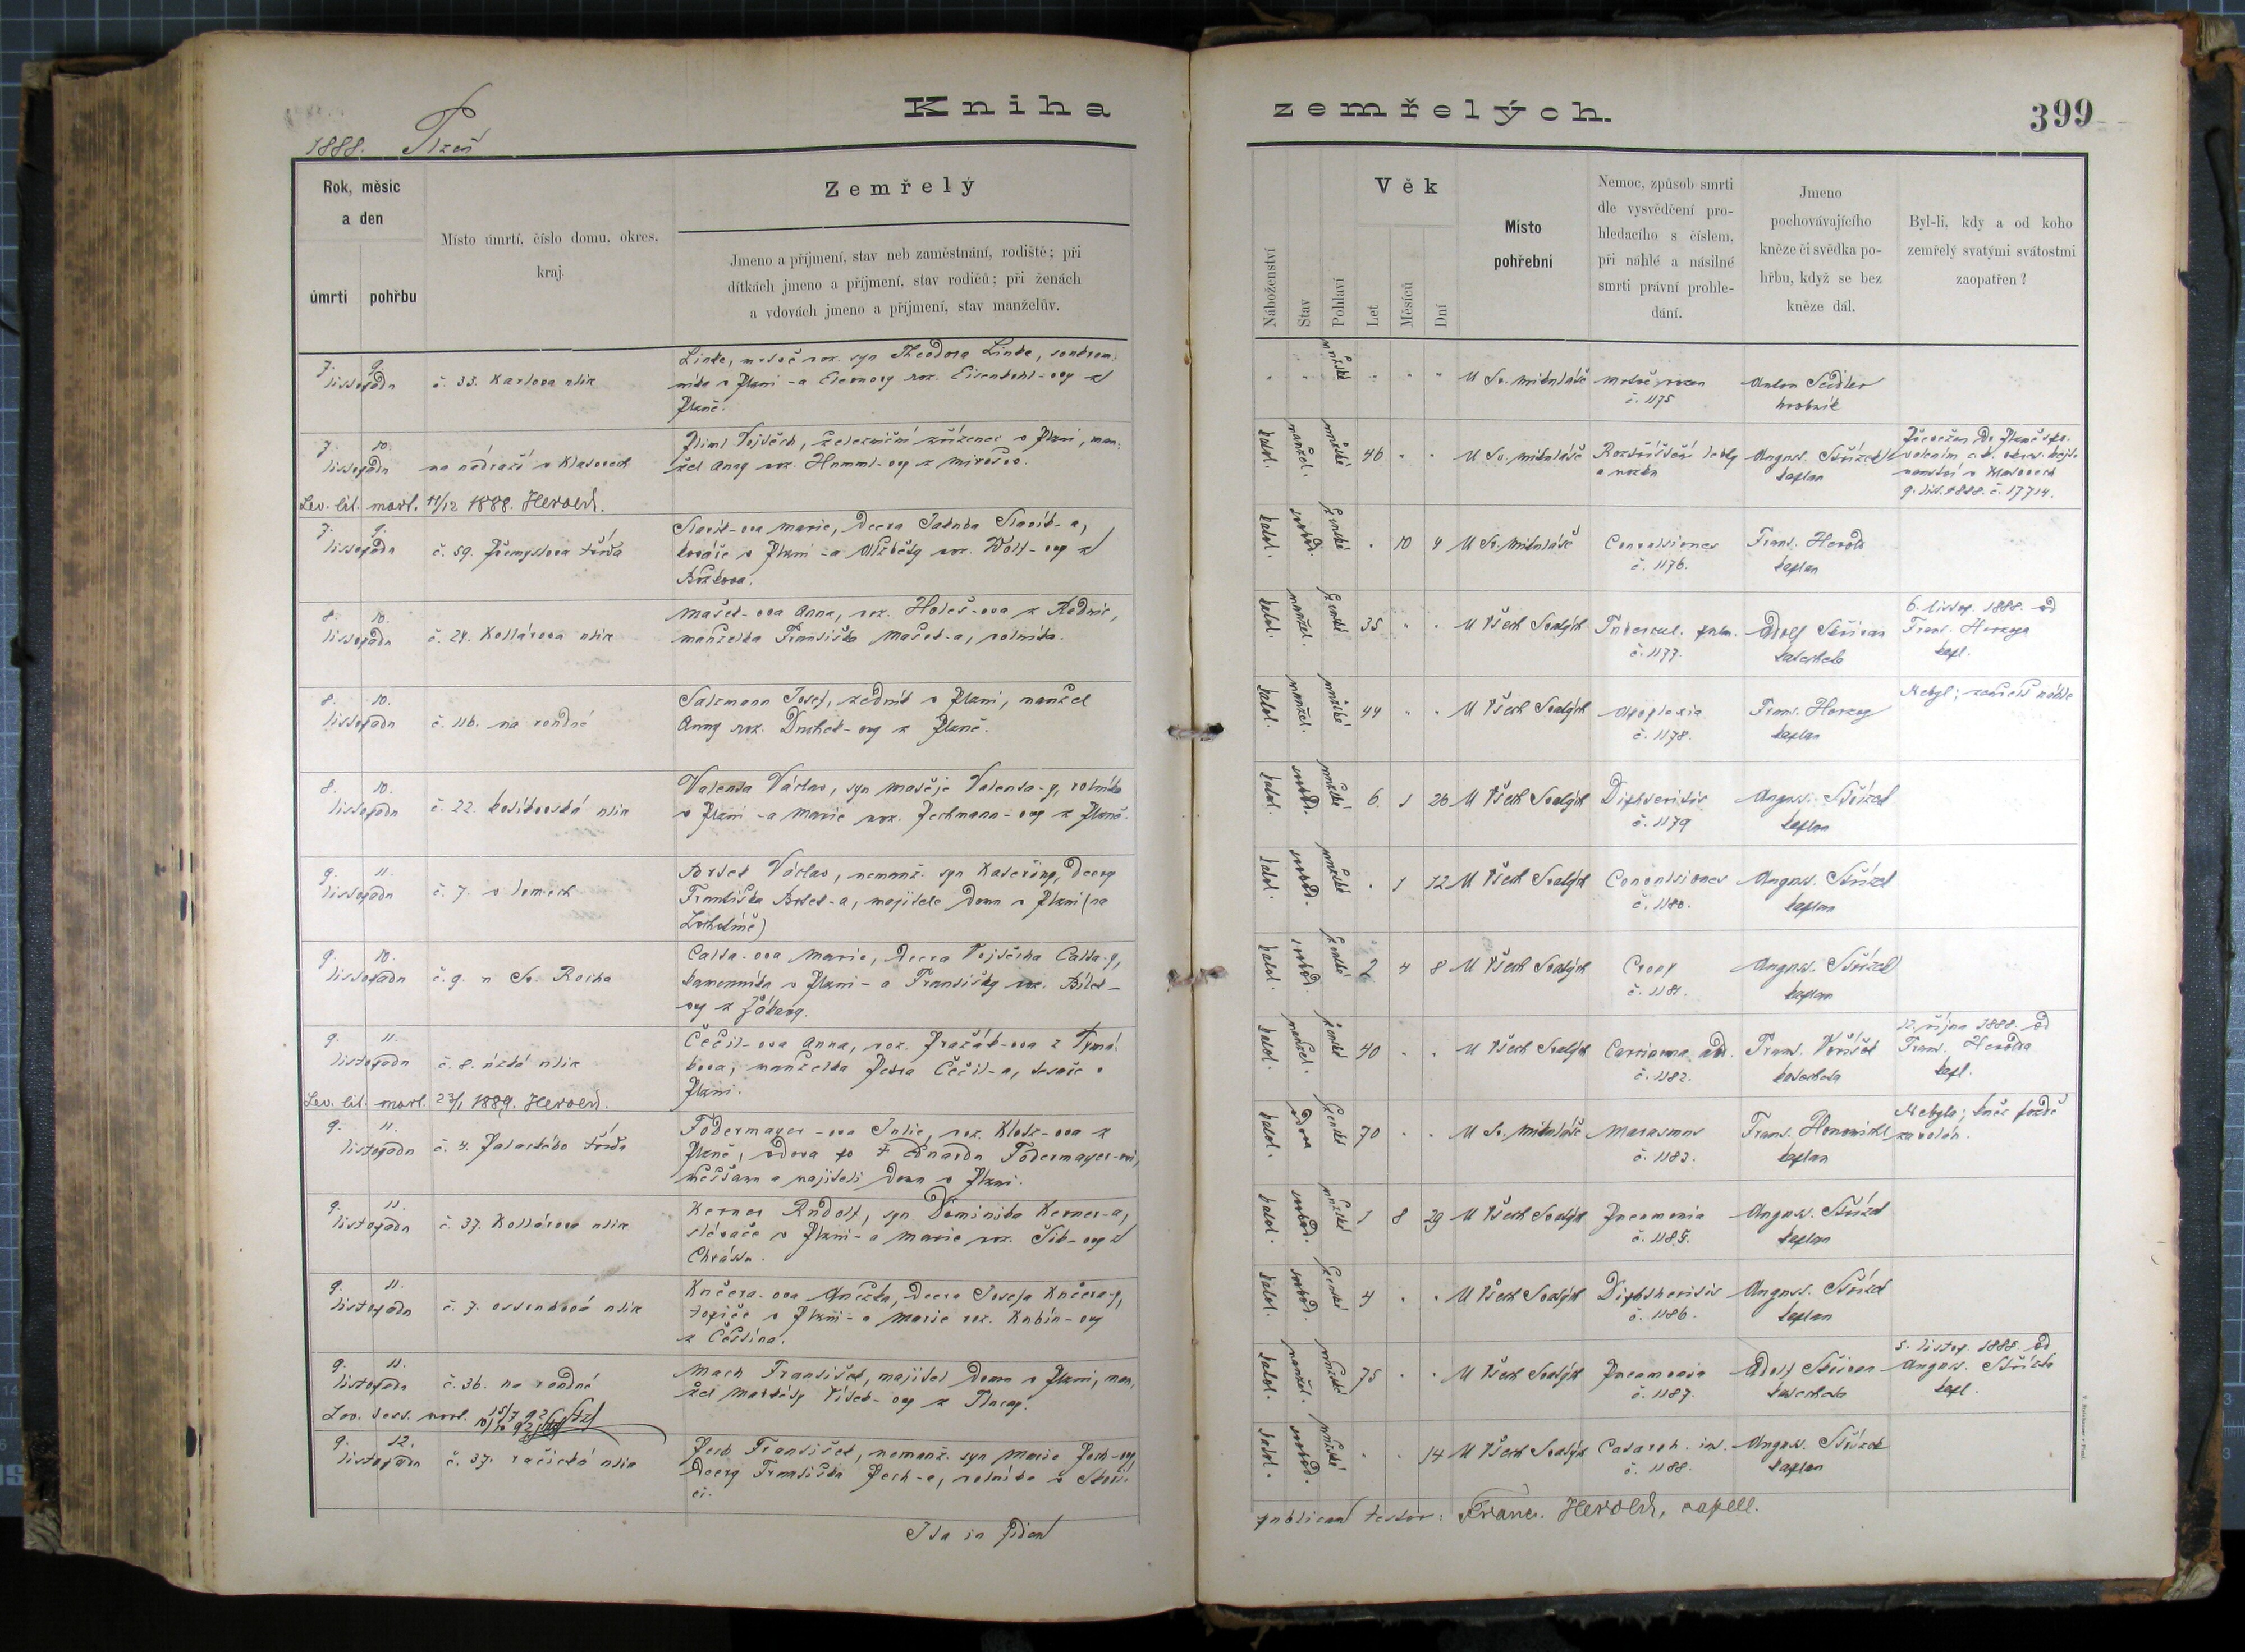 Kniha zemřelých.
399
1888. Plzeň
Rok, měsic
a den
úmrtí pohřbu
Místo úmrtí, číslo domu, okres,
kraj.
Zemřelý
Jmeno a příjmení, stav neb zaměstnání, rodiště; při
dítkách jmeno a příjmení, stav rodičů; při ženách
a vdovách jmeno a příjmení, stav manželův.
Náboženství
Stav
Pohlaví
Věk
Let
Měsíců
Dní
Místo
pohřební
Nemoc, způsob smrti
dle vysvědčení pro-
hledacího s číslem,
při náhlé a násilné
smrti právní prohle-
dání.
Jmeno
pochovávajícího
kněze či svědka po-
hřbu, když se bez
kněze dál.
Byl-li, kdy a od koho
zemřelý svatými svátostmi
zaopatřen?
7. 9.
listopadu č. 33. Karlova ulice
Linke, mrtvě roz. syn Theodora Linke, soukrom-
níka v Plzni - a Eleonory roz. Eisenkohl-ovy z
Plzně.
mužské
U Sv. Mikuláše mrtvě rozen
č. 1175
Anton Seidler
hrobník
7. 10.
listopadu na nádraží v Klatovech
Pliml Vojtěch, železniční zřízenec v Plzni, man-
žel Anny roz. Humml-ovy z Mirošov.
katol. manžel. mužské 46 U Sv. Mikuláše Roztříštění lebky
August. Střízek
kaplan
Převezen do Plzně s po-
volením c. k. okres. hejt-
manství v Klatovech
9. list. 1888. č. 17714.
Lev. lit. mort. 11/12 1888. Herold.
7. 9.
listopadu č. 59. Přemyslova třída
Slavík-ova Marie, dcera Jakuba Slavík-a,
kováře v Plzni - a Alžběty roz. Wolf-ovy z
katol. svobod. ženské 10 4 U Sv. Mikuláše Convulsiones
č. 1176.
Frant. Herold
kaplan
8. 10.
listopadu č. 24. Kollárova ulice
Mašek-ova Anna, roz. Holeš-ova z Radnic,
manželka Františka Mašek-a, rolníka.
katol. manžel. ženské 35 U Všech Svatých Tubercul. pulm.
č. 1177.
Adolf Skřivan
katecheta
6. listop. 1888. od
Frant. Herzoga
kapl.
8. 10.
listopadu č. 116. na rondné
Salzmann Josef, zedník v Plzni, manžel
Anny roz. Duchek-ovy z Plzně.
katol. manžel. mužské 44 U Všech Svatých Apoplexia
č. 1178.
Frant. Herzog
kaplan
Nebyl; zemřelť náhle
8. 10.
listopadu č. 22. košíkovská ulice
Valenta Václav, syn Matěje Valenta-y, rolníka
v Plzni - a Marie roz. Pechmann-ovy z Plzně.
katol. svobod. mužské 6 1 26 U Všech Svatých Diphteritis
č. 1179
August. Střízek
kaplan
9. 11.
listopadu č. 7. v lomech
Václav, nemanž. syn Kateřiny, dcery
Františka -a, majitele domu v Plzni (na
Lochotíně)
katol. svobod. mužské 1 12 U Všech Svatých Convulsiones
č. 1180.
August. Střízek
kaplan
9. 10.
listopadu č. 9. u Sv. Rocha
Calta-ova Marie, dcera Vojtěcha Calta-y,
kameníka v Plzni - a Františky roz. Bílek-
ovy z
katol. svobod. ženské 2 4 8 U Všech Svatých Croup
č. 1181.
August. Střízek
kaplan
9. 11.
listopadu č. 8. úzká ulice
Čečil-ova Anna, roz. Pražák-ova z Tymá-
kova, manželka Petra Čečil-a, tesaře v
Plzni.
katol. manžel. ženské 40 U Všech Svatých Carcinoma abd.
č. 1182.
Frant. Voršek
katecheta
12. října 1888. od
Frant. Herolda
kapl.
Lev. lit. mort. 23/1 1889. Herold.
9. 11.
listopadu č. 4. Palackého třída
Födermayer-ova Julie, roz. Klotz-ova z
Plzně, vdova po † Eduardu Födermayer-ovi,
měšťanu a majiteli domu v Plzni.
katol. vdova ženské 70 U Sv. Mikuláše Marasmus
č. 1183.
Frant.
kaplan
Nebyla; kněz pozdě
zavolán.
9. 11.
listopadu č. 37. Kollárova ulice
Kerner Rudolf, syn Dominika Kerner-a,
slévače v Plzni - a Marie roz. Šik-ovy z
Chrástu.
katol. svobod. mužské 1 8 29 U Všech Svatých Pneumonia
č. 1185.
August. Střízek
kaplan
9. 11.
listopadu č. 7. ovsenková ulice
Kučera-ova Anežka, dcera Josefa Kučera-y,
topiče v Plzni - a Marie roz. Kubín-ovy
z Češtína.
katol. svobod. ženské 4 U Všech Svatých Diphtheritis
č. 1186.
August. Střízek
kaplan
9. 11.
listopadu č. 36. na rondné
Mach František, majitel domu v Plzni, man-
žel Markéty Vítek-ovy z
katol. manžel. mužské 75 U Všech Svatých Pneumonia
č. 1187.
Adolf Skřivan
katecheta
5. listop. 1888. od
August. Střízka
kapl.
Lev. test. mort. 15/7 92
9. 12.
listopadu č. 37. račická ulice
Pech František, nemanž. syn Marie Pech-ovy,
dcery Františka Pech-a, rolníka
katol. svobod. mužské 14 U Všech Svatých Catarrh. int.
č. 1188.
August. Střízek
kaplan
Ita in fidem publicam testor: Franc. Herold, capell.